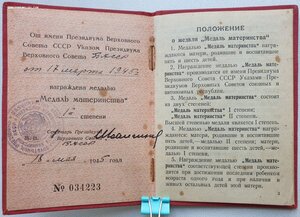 От имени Президиума Верховного
Совета СССР Указом Президиума
Верховного Совета БССР
от 17 марта 1945 г.
награждена медалью
„Медаль материнства“
степени
Президиума
Верховного Совета
БССР
18 мая 1945 года
№ 034223
ПОЛОЖЕНИЕ
о медали „Медаль материнства“
1. Медалью „Медаль материнства“ награждаются
матери, родившие и воспитавшие
пять и шесть детей.
2. Награждение медалью „Медаль материнства“
производится от имени Президиума
Верховного Совета СССР Указами
Президиумов Верховных Советов союзных и
автономных республик.
3. „Медаль материнства“ состоит
из двух степеней:
„Медаль материнства“ I степени,
„Медаль материнства“ II степени.
Высшей степенью медали является I степень.
4. Медалью „Медаль материнства“
награждаются матери, родившие и воспитавшие:
пять детей — медалью II степени,
шесть детей — медалью I степени.
5. Награждение медалью „Медаль материнства“
производится
при достижении последним ребенком
возраста одного года и при наличии
в живых остальных детей этой матери.